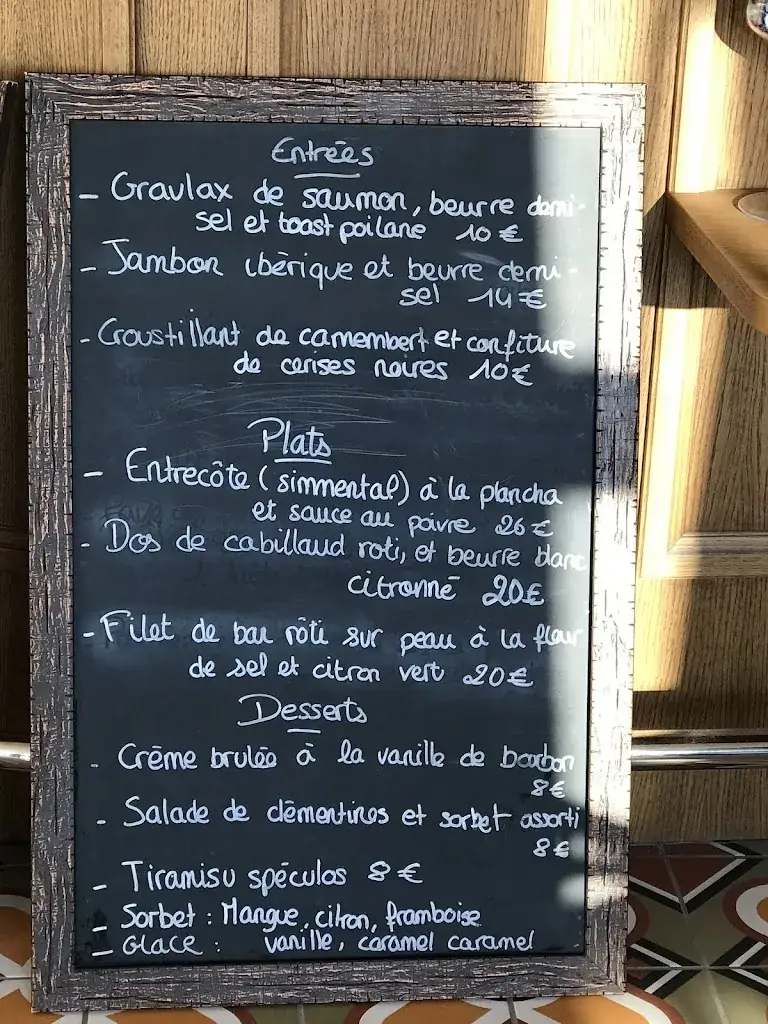 Entrées
- Gravlax de saumon, beurre demi-
sel et toast poilane 10€
- Jambon ibérique et beurre demi-
sel 14€
- Croustillant de camembert et confiture
de cerises noires 10€
Plats
- Entrecôte (simmental) à la plancha
et sauce au poivre 26€
- Dos de cabillaud roti, et beurre blanc
citronné 20€
- Filet de bar rôti sur peau à la fleur
de sel et citron vert 20€
Desserts
- Crême brulée à la vanille de bourbon
8€
- Salade de clémentines et sorbet assorti
8€
- Tiramisu spéculos 8€
- Sorbet : Mangue, citron, framboise
- GLACE : vanille, caramel caramel